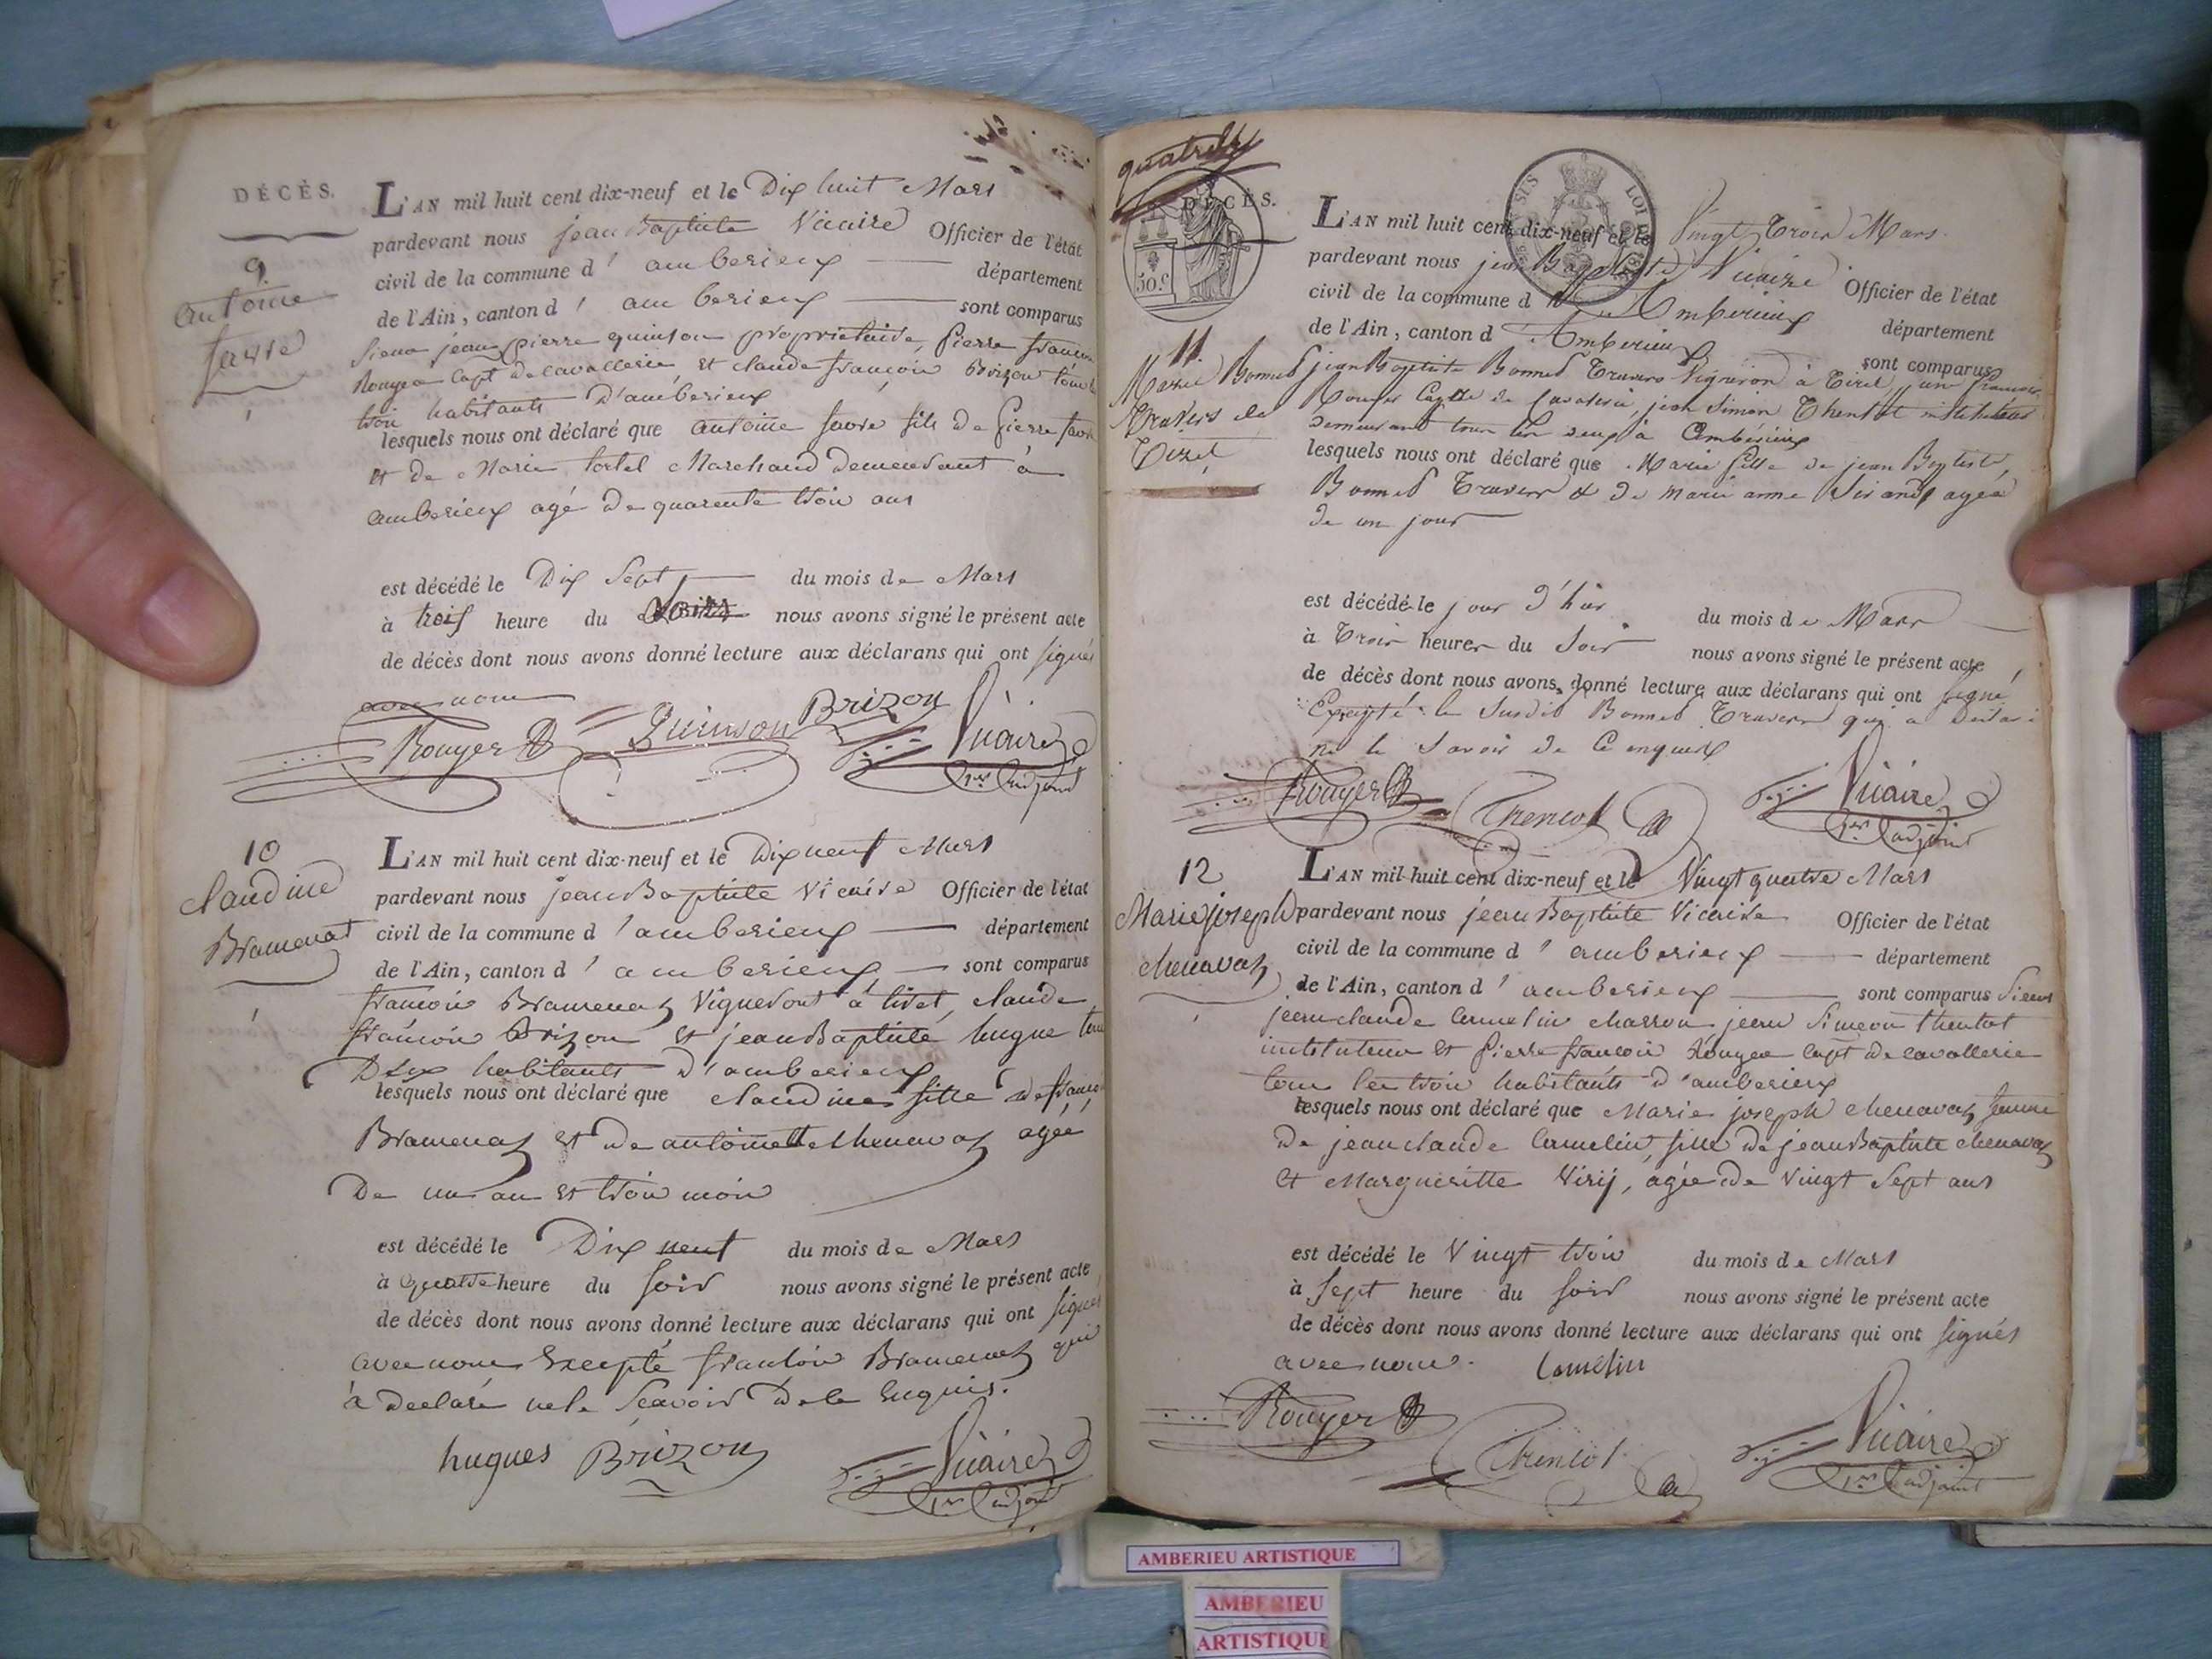 DÉCÈS.
9
antoine
favre
L'AN mil huit cent dix-neuf et le Dix huit Mars
pardevant nous jean Baptiste Vicaire Officier de l'état
civil de la commune d' amberieux département
de l'Ain, canton d' amberieux sont comparus
Sieur jean pierre quinson proprietaire, pierre françois
Rouyer Capt de cavallerie et claude françois Brizon tous les
trois habitants d'amberieux
lesquels nous ont déclaré que antoine favre fils de Pierre favre
et de Marie tortel Marchand demeurant à
amberieux agé de quarente trois ans
est décédé le Dix Sept du mois de Mars
à trois heure du nous avons signé le présent acte
de décès dont nous avons donné lecture aux déclarans qui ont signés
avec nous
Rouyer Quinson Brizon Vicaire
1er adjoint
10
claudine
Bramenat
L'AN mil huit cent dix-neuf et le Dix neuf Mars
pardevant nous jean Baptiste Vicaire Officier de l'état
civil de la commune d' amberieux département
de l'Ain, canton d' amberieux sont comparus
françois Bramenaz Vigneront à tiret, claude
françois Brizon et jean Baptiste hugue tous
Deux habitants d'amberieux
lesquels nous ont déclaré que claudine fille de françois
Bramenaz et de antoinette chenavaz agée
De un an et trois mois
est décédé le Dix neuf du mois de Mars
à quatre heure du soir nous avons signé le présent acte
de décès dont nous avons donné lecture aux déclarans qui ont signés
avec nous Excepté françois Bramenaz qui
à declaré ne le Scavoir De le Enquis.
hugues Brizon Vicaire
1er adjoint
DÉCÈS.
50 c
11.
Marie Bonnet
Travers de
Tiret
L'AN mil huit cent dix-neuf et le Vingt Trois Mars.
pardevant nous jean Baptiste Vicaire Officier de l'état
civil de la commune d Amberieux département
de l'Ain, canton d Amberieux sont comparus
jean Baptiste Bonnet Travers Vigneron à Tiret, françois
Rouyer Capne de Cavalerie, jean Simeon Thentot instituteur
demeurant tous les deux à Ambérieux
lesquels nous ont déclaré que Marie fille de jean Baptiste
Bonnet Travers & de marie anne Sirand, agée
de un jour
est décédé le jour d'hier du mois de Mars
à Trois heures du Soir nous avons signé le présent acte
de décès dont nous avons donné lecture aux déclarans qui ont signé
Excepté le Susdit Bonnet Travers qui a déclaré
ne le Savoir de ce enquis
Rouyer Thentot Vicaire
1er adjoint
12
Marie joseph
chenavaz
L'AN mil huit cent dix-neuf et le Vingt quatre Mars
pardevant nous jean Baptiste Vicaire Officier de l'état
civil de la commune d' amberieux département
de l'Ain, canton d' amberieux sont comparus Sieur
jean claude Camelin charron jean Simeon thentot
instituteur et pierre françois Rouyer Capt de cavallerie
tous les trois habitants d'amberieux
lesquels nous ont déclaré que Marie joseph chenavaz femme
de jean claude Camelin, fille de jean Baptiste chenavaz
et Margueritte Viry, agée de Vingt Sept ans
est décédé le Vingt trois du mois de Mars
à Sept heure du soir nous avons signé le présent acte
de décès dont nous avons donné lecture aux déclarans qui ont signés
avec nous. Camelin
Rouyer Thentot Vicaire
1er adjoint
AMBERIEU ARTISTIQUE
AMBERIEU
ARTISTIQUE